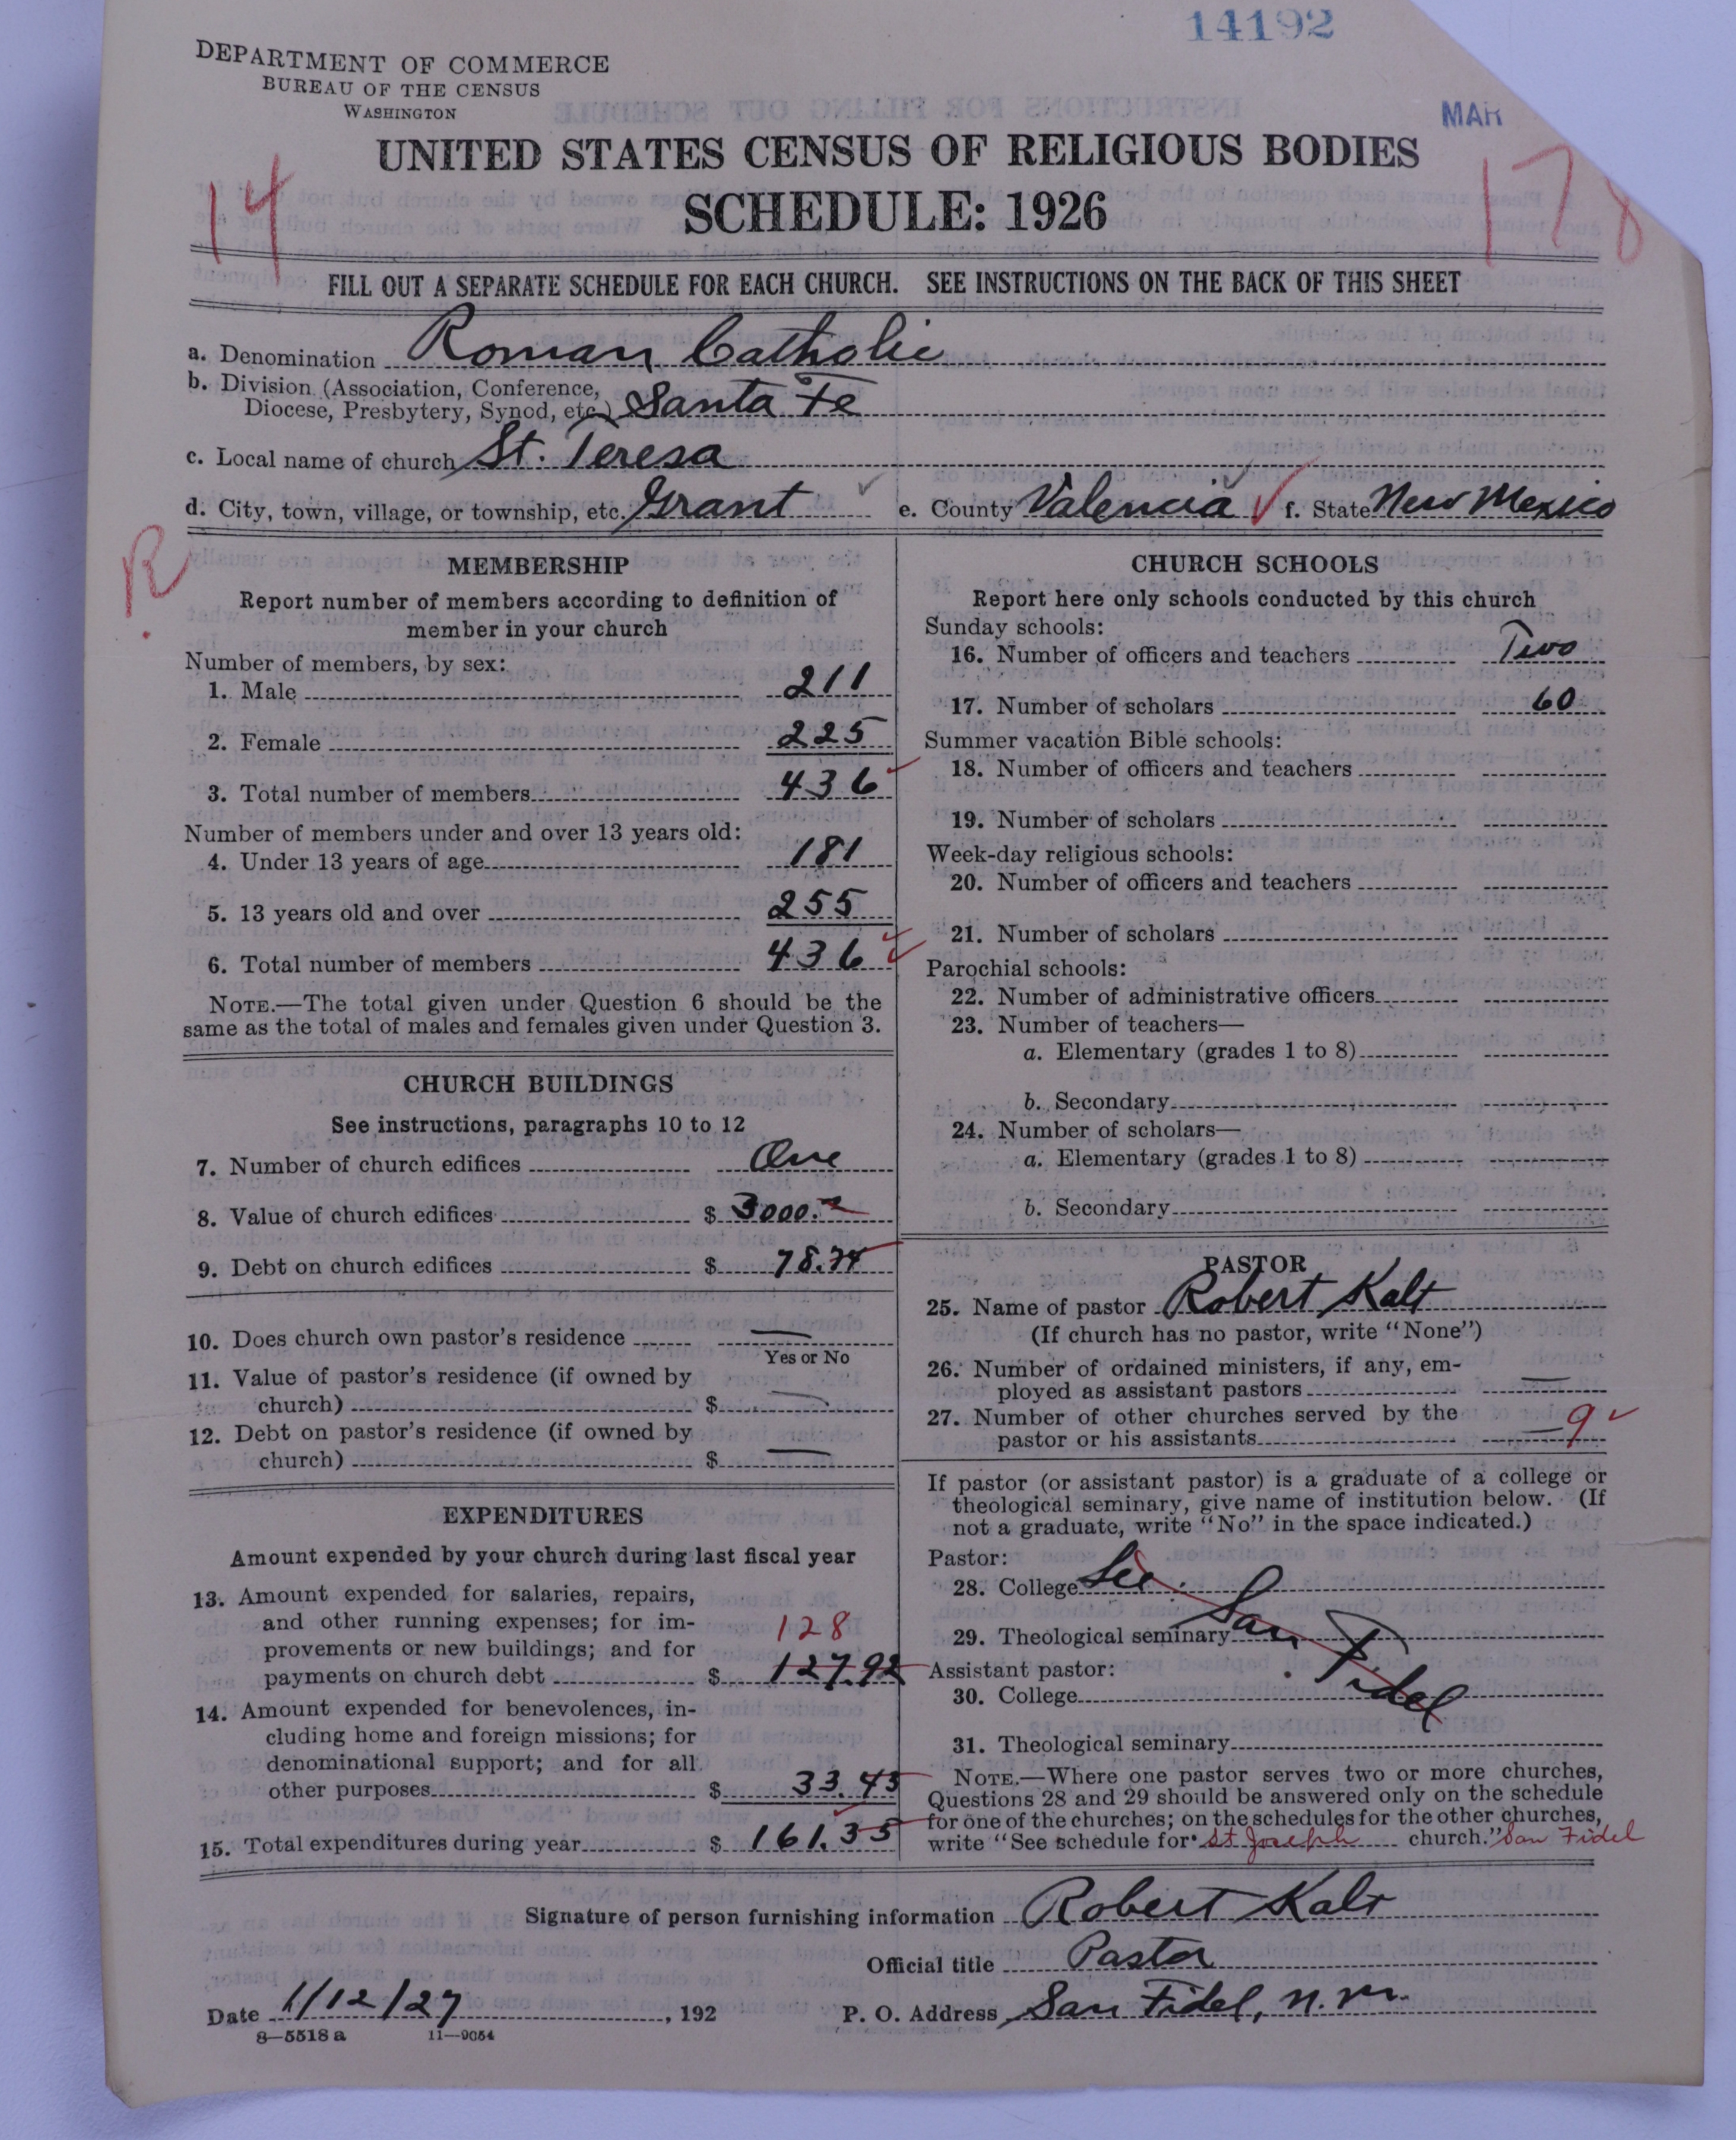 14192
DEPARTMENT OF COMMERCE
BUREAU OF THE CENSUS
WASHINGTON
MAR
UNITED STATES CENSUS OF RELIGIOUS BODIES
14
178
SCHEDULE: 1926
FILL OUT A SEPARATE SCHEDULE FOR EACH CHURCH. SEE INSTRUCTIONS ON THE BACK OF THIS SHEET
a. Denomination Roman Catholic
b. Division (Association, Conference,
Diocese, Presbytery, Synod, etc.) Santa Fe
c. Local name of church St. Teresa
d. City, town, village, or township, etc. Grant e. County Valencia f. State New Mexico
R
MEMBERSHIP
Report number of members according to definition of
member in your church
Number of members, by sex:
1. Male 211
2. Female 225
3. Total number of members 436
Number of members under and over 13 years old:
4. Under 13 years of age 181
5. 13 years old and over 255
6. Total number of members 436
NOTE.—The total given under Question 6 should be the
same as the total of males and females given under Question 3.
CHURCH BUILDINGS
See instructions, paragraphs 10 to 12
7. Number of church edifices One
8. Value of church edifices $ 3000.
9. Debt on church edifices $ 78.74
10. Does church own pastor's residence —
Yes or No
11. Value of pastor's residence (if owned by
church) $ —
12. Debt on pastor's residence (if owned by
church) $ —
EXPENDITURES
Amount expended by your church during last fiscal year
13. Amount expended for salaries, repairs,
and other running expenses; for im-
provements or new buildings; and for 128
payments on church debt $ 127.92
14. Amount expended for benevolences, in-
cluding home and foreign missions; for
denominational support; and for all
other purposes $ 33.43
15. Total expenditures during year $ 161.35
CHURCH SCHOOLS
Report here only schools conducted by this church
Sunday schools:
16. Number of officers and teachers Two
17. Number of scholars 60
Summer vacation Bible schools:
18. Number of officers and teachers
19. Number of scholars
Week-day religious schools:
20. Number of officers and teachers
21. Number of scholars
Parochial schools:
22. Number of administrative officers
23. Number of teachers—
a. Elementary (grades 1 to 8)
b. Secondary
24. Number of scholars—
a. Elementary (grades 1 to 8)
b. Secondary
PASTOR
25. Name of pastor Robert Kalt
(If church has no pastor, write "None")
26. Number of ordained ministers, if any, em-
ployed as assistant pastors —
27. Number of other churches served by the
pastor or his assistants — 9
If pastor (or assistant pastor) is a graduate of a college or
theological seminary, give name of institution below. (If
not a graduate, write "No" in the space indicated.)
Pastor:
28. College See:
29. Theological seminary San Fidel
Assistant pastor:
30. College
31. Theological seminary
NOTE.—Where one pastor serves two or more churches,
Questions 28 and 29 should be answered only on the schedule
for one of the churches; on the schedules for the other churches,
write "See schedule for St Joseph church." San Fidel
Signature of person furnishing information Robert Kalt
Official title Pastor
Date 1/12/27, 192 P. O. Address San Fidel, N. M.
8—5518 a 11—9054